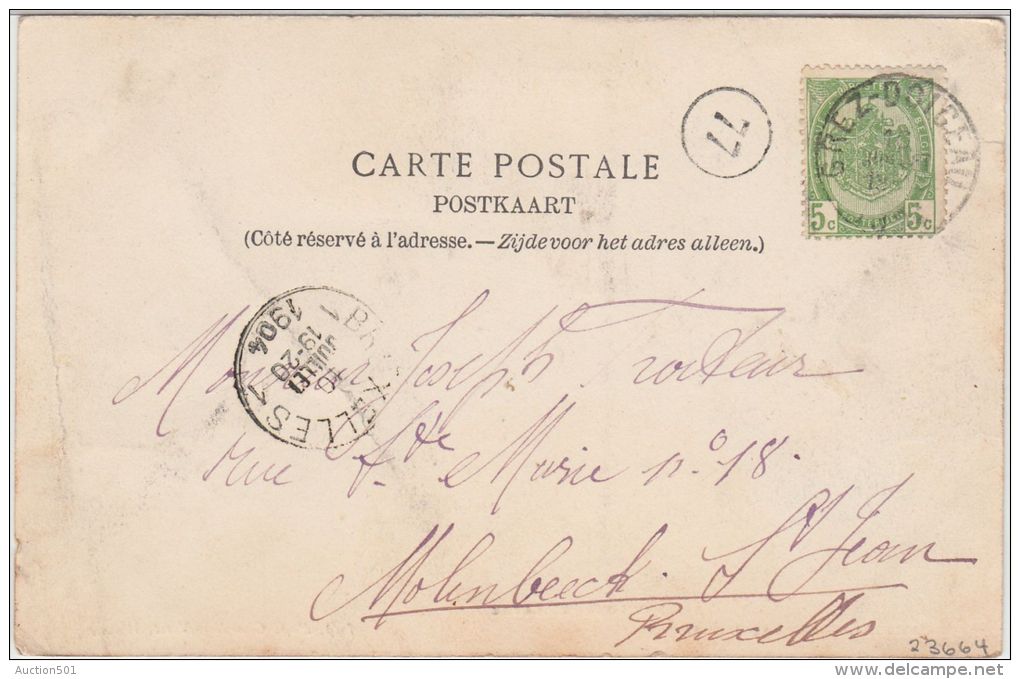 CARTE POSTALE
POSTKAART
(Côté réservé à l'adresse. — Zijde voor het adres alleen.)
77
GREZ-DOICEAU
5c 5c
BRUXELLES 1
1904
19-20
JUILLET
Monsieur Joseph
rue Ste Marie n° 18.
Molenbeeck. St Jean
Bruxelles
23664
Auction501
www.delcampe.net